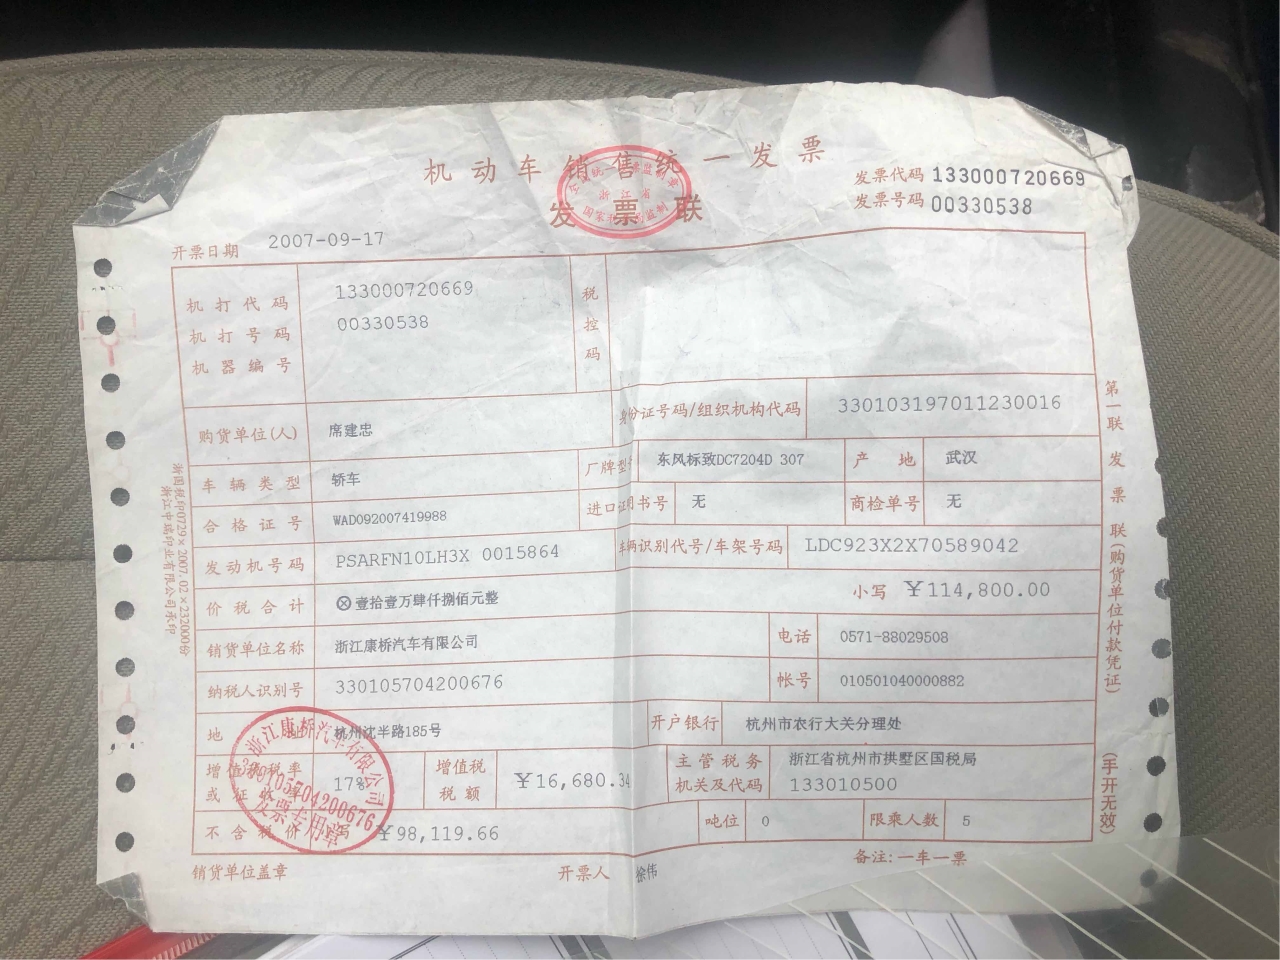 机动车销售统一发票
发票联
发票代码 133000720669
发票号码 00330538
开票日期 2007-09-17
机打代码 133000720669
机打号码 00330538
机器编号
税控码
购货单位(人) 席建忠 身份证号码/组织机构代码 330103197011230016
车辆类型 轿车 厂牌型号 东风标致DC7204D 307 产地 武汉
合格证号 WAD092007419988 进口证明书号 无 商检单号 无
发动机号码 PSARFN10LH3X 0015864 车辆识别代号/车架号码 LDC923X2X70589042
价税合计 ⊗壹拾壹万肆仟捌佰元整 小写 ￥114,800.00
销货单位名称 浙江康桥汽车有限公司 电话 0571-88029508
纳税人识别号 330105704200676 帐号 010501040000882
地址 杭州沈半路185号 开户银行 杭州市农行大关分理处
增值税税率或征收率 17% 增值税税额 ￥16,680.34 主管税务机关及代码 浙江省杭州市拱墅区国税局 133010500
不含税价 小写 ￥98,119.66 吨位 0 限乘人数 5
销货单位盖章 开票人 徐伟 备注:一车一票
第一联 发票联(购货单位付款凭证)
(手开无效)
浙江康桥汽车有限公司
330105704200676
发票专用章
浙江省